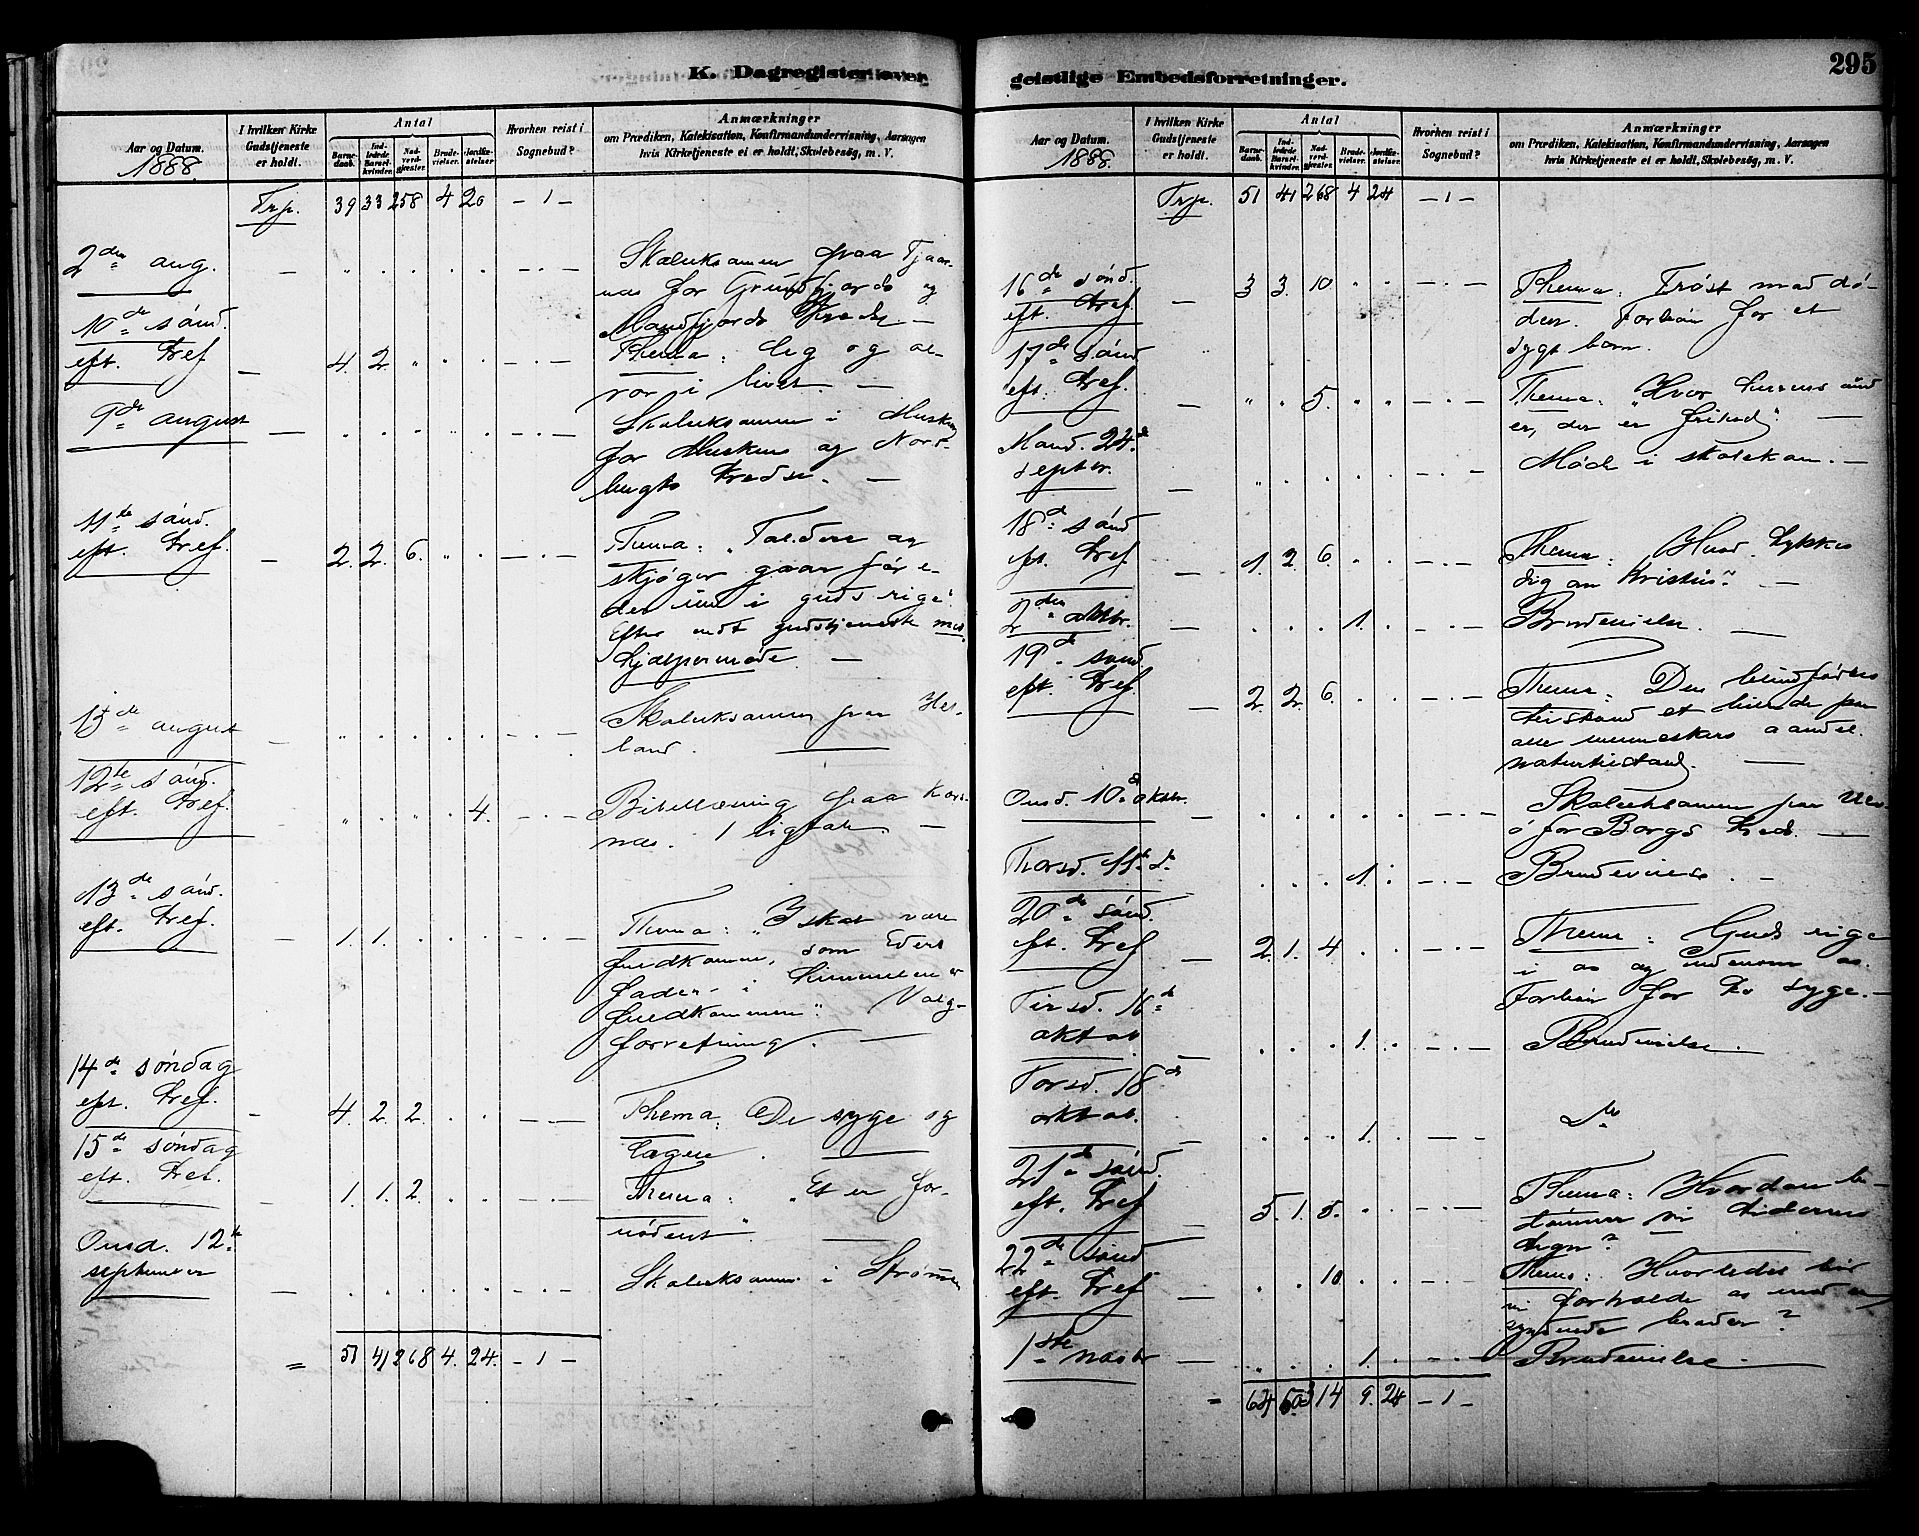 K. Dagregister over
Aar og Datum.
1888
I hvilken Kirke Gudstjeneste er holdt.
Antal
Barnedaab.
Indledede Barselkvinder.
Nadverdgjester.
Brudevielser.
Jordfæstelser.
Hvorhen reist i Sognebud?
Anmærkninger
om Prædiken, Katekisation, Konfirmandundervisning, Aarsagen
hvis Kirketjeneste ei er holdt, Skolebesøg, m. V.
Trp. 39 33 258 4 20 - 1 -
2den aug. - " . . . . - . - Skoleksamen paa Tjaar-
næs for Grundfjords og
10de sønd. Mandfjords Kredse. -
eft. tref - 4. 2. " . . - . - Thema: leg og al-
vor i livet. -
9de august - . . . . . - . - Skoleksamen i Musken
for Muskens og Nord-
bugts kredse. -
11te sønd.
eft. tref. - 2. 2. 6. " . - . - Thema: "Toldere og
skjøger gaar før e-
der ind i guds rige".
Efter endt gudstjeneste med-
hjælpermøde. -
15de august - " . . . . - . - Skoleksamen paa Hel-
land.
12te sønd.
eft. tref. - " . . . 4. - . - Bibellæsning paa Kors-
næs. 1 ligtale. -
13de sønd.
eft. tref. - 1. 1. . . . - . - Thema: "I skal være
fuldkomne, som Eders
fader i himmelen er
fuldkommen". Valg-
forretning. -
14de søndag
eft. tref. - 4. 2. 2. . . - . - Thema: De syge og
lægen.
15de søndag
eft. tref. - 1. 1. 2. . . - . - Thema: "Et er for-
nødent".
Onsd. 12te
september - . . . . . - . - Skoleksamen i Strømmen
= 51 41 268 4. 24. - 1 -
geistlige Embedsforretninger.
295
Aar og Datum.
1888.
I hvilken Kirke Gudstjeneste er holdt.
Antal
Barnedaab.
Indledede Barselkvinder.
Nadverdgjester.
Brudevielser.
Jordfæstelser.
Hvorhen reist i Sognebud?
Anmærkninger
om Prædiken, Katekisation, Konfirmandundervisning, Aarsagen
hvis Kirketjeneste ei er holdt, Skolebesøg, m. V.
Trp. 51 41 268 4 24 - 1 -
16de sønd.
eft. tref. - 3 3. 10. . . - . - Thema: Trøst mod dø-
den. Forbøn for et
sygt barn.
17de sønd.
eft. tref. - " . 5. . . - . - Thema: "Hvor herrens ånd
er, der er frihed". -
Mand. 24de
septbr. - " . . . . - . - Møde i skolekom. -
18de sønd.
eft. tref. - 1. 2. 6. . . - . - Thema: Hvad tykkes
dig om Kristus? -
2den oktbr. . . . 1. . - . - Brudevielse. -
19de sønd.
eft. tref. - 2. 2. 6. . . - . - Thema: Den blindfødtes
tilstand et billede paa
alle menneskers aandel.
naturtilstand. -
Onsd. 10de oktbr. - . . . . . - . - Skoleksamen paa
ø for Borgs kreds. -
Thorsd. 11te do . . . 1. . - . - Brudevielse. -
20de sønd.
eft. tref - 2. 1. 4. . . - . - Thema: Guds rige
i os og udenom os.
Forbøn for to syge. -
Tirsd. 16de
oktob. - . . . 1. . - . - Brudevielse.
Torsd. 18de
oktob. . . . 1. . - . - do
21de sønd.
eft. tref. - 5. 1. 5. . . - . - Thema: Hvordan be-
dømmer vi tidernes
tegn? -
22de sønd.
eft. tref. - . . 10. . . - . - Thema: Hvorledes bør
vi forholde os mod en
syndende broder?
1ste novbr - . . . 1. . - . - Brudevielse.
= 64 50 314 9. 24 - 1 -